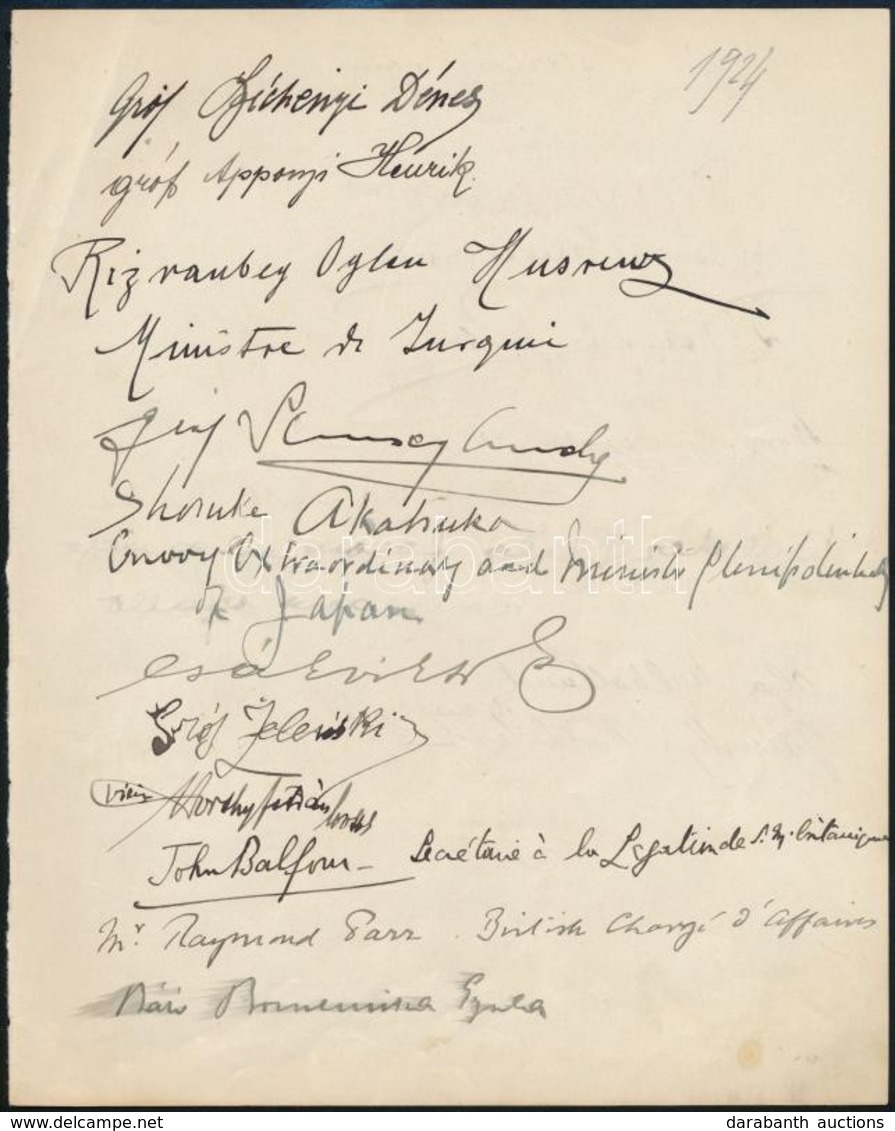 1924
Gróf Széchenyi Dénes
gróf Apponyi Henrik.
Rizvanbey Oglou Husrew
Ministre de Turquie
gróf
Shosuke Akatsuka
Envoy Extraordinary and Minister Plenipotentiary
of Japan
Gróf Zelenski
Horthy István
John Balfour – Secrétaire à la Légation de S. M. britannique
Mr. Raymond Parr. British Chargé d'Affaires
Báró Bornemisza Gyula
darabanth
darabanth auctions